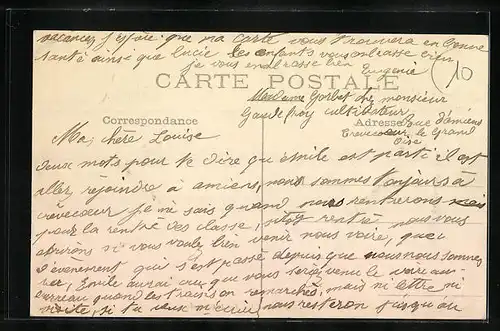 vacances j'espère que ma carte vous trouvera en bonne
santé ainsi que Lucie les enfants vous embrasse
je vous embrasse bien Eugenie
10
CARTE POSTALE
Madame Gorbet chez monsieur
cultivateur
Correspondance
Adresse rue d'amiens
Crevecoeur le Grand
Oise
Ma chère Louise
deux mots pour te dire que émile est parti il est
aller rejoindre a amiens, nous sommes toujours à
crevecoeur je ne sais quand nous rentrerons
pour la rentré des classe, rentré nous vous
si vous voulez bien venir nous voire, que
d'evenement qui s'est passé depuis que nous nous sommes
Emile aurai cru que vous seriez venu le voire au
quand les trains on remarchés, mais ni lettre ni
visite, si tu veux m'ecrire nous resteron jusqu'au